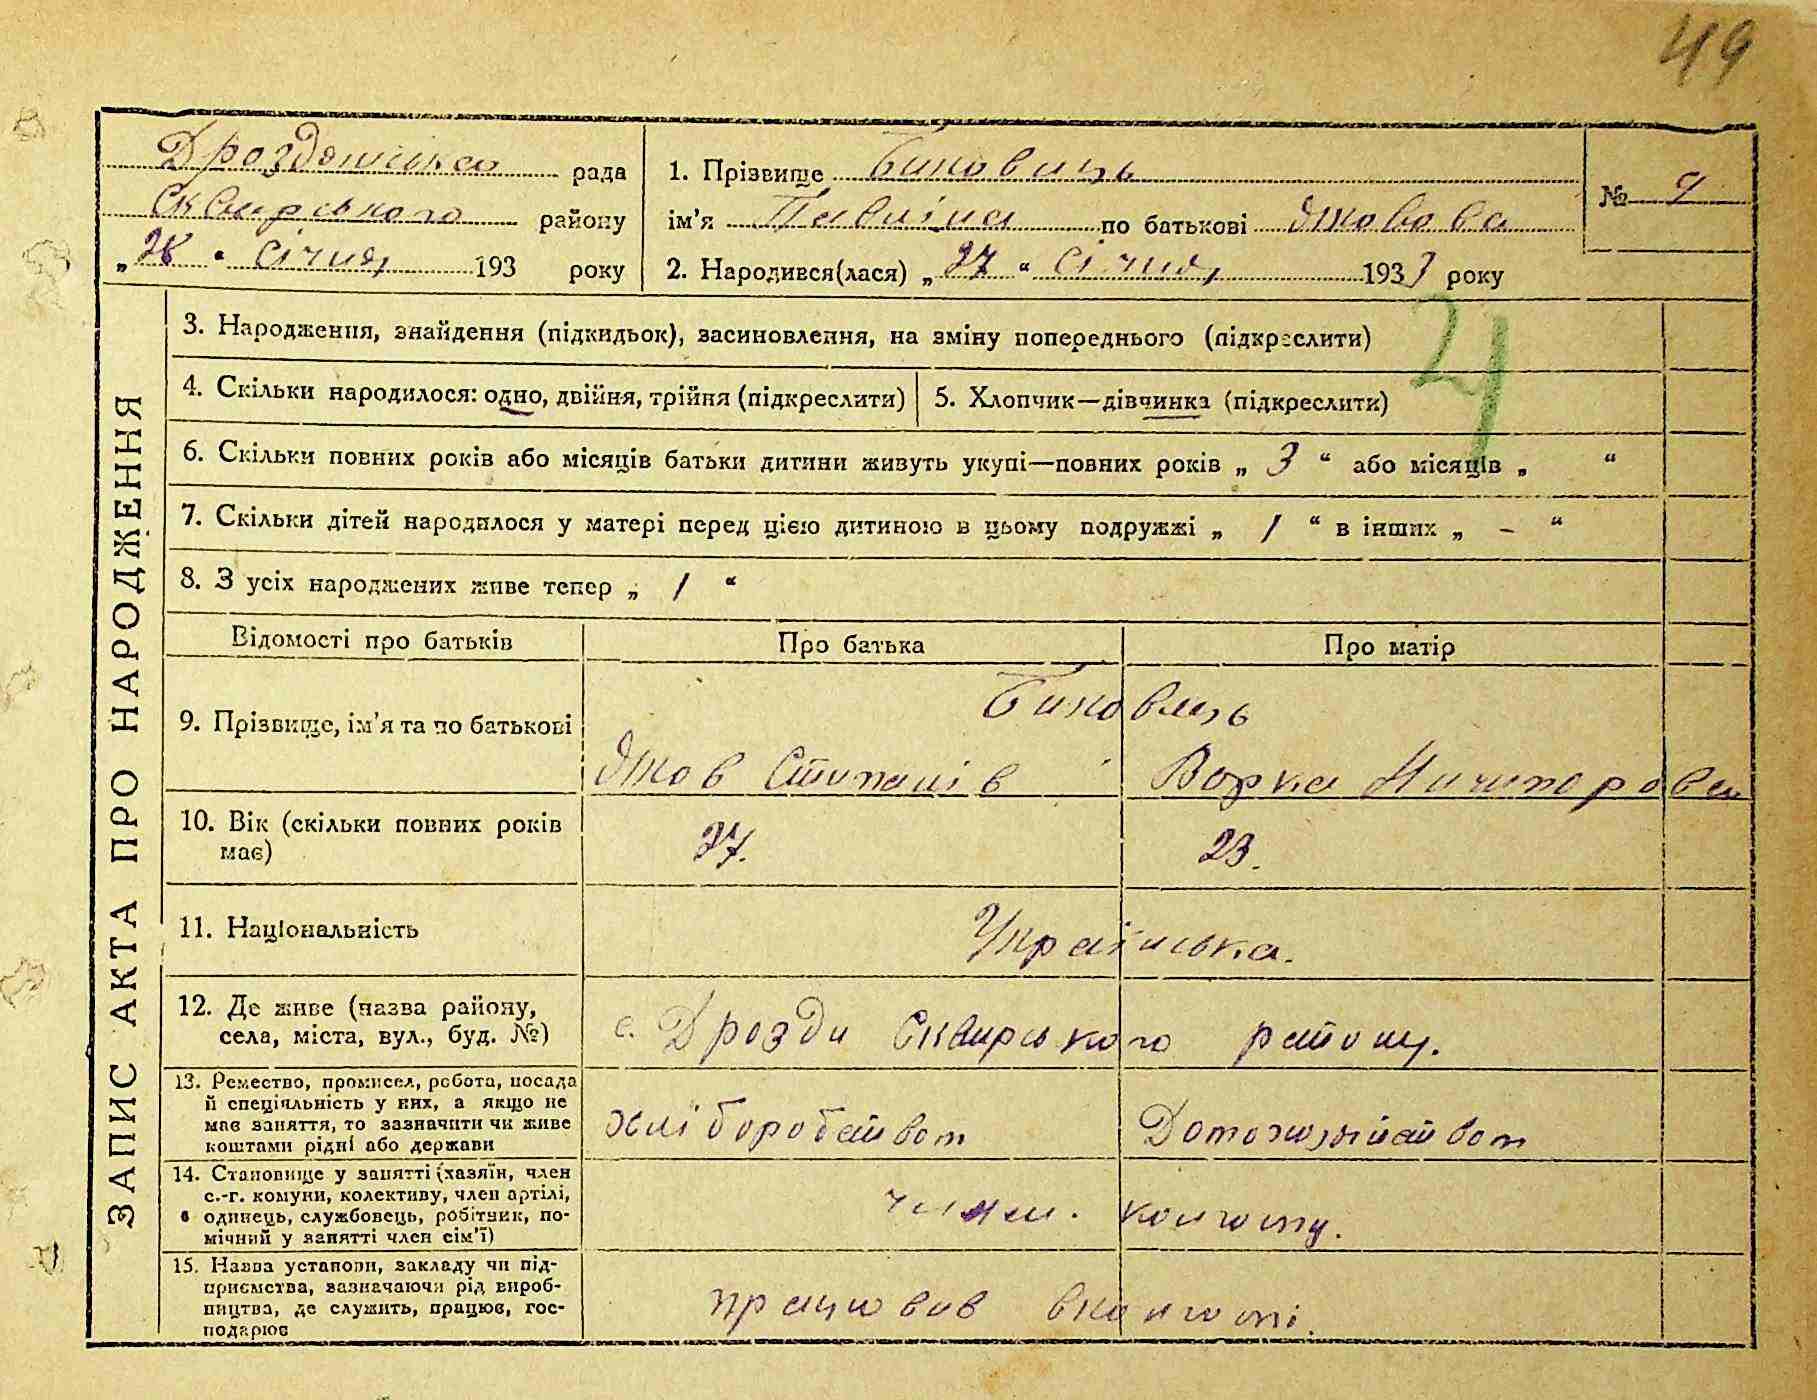 49
Дроздянська рада
Сквирського району
„28“ Січня 193 року
1. Прізвище Биковець
ім'я Павліна по батькові Якова
2. Народився(лася) „27“ Січня 1933 року
№ 9
24
ЗАПИС АКТА ПРО НАРОДЖЕННЯ
3. Народження, знайдення (підкидьок), засиновлення, на зміну попереднього (підкреслити)
4. Скільки народилося: одно, двійня, трійня (підкреслити)
5. Хлопчик—дівчинка (підкреслити)
6. Скільки повних років або місяців батьки дитини живуть укупі—повних років „ 3 “ або місяців „ “
7. Скільки дітей народилося у матері перед цією дитиною в цьому подружжі „ 1 “ в інших „ - “
8. З усіх народжених живе тепер „ 1 “
Відомості про батьків
Про батька
Про матір
9. Прізвище, ім'я та по батькові
Биковець
Яков Степанів
Варка Ничипорова
10. Вік (скільки повних років
має)
27.
23.
11. Національність
Українська.
12. Де живе (назва району,
села, міста, вул., буд. №)
с. Дрозди Сквирського району.
13. Ремество, промисел, робота, посада
й спеціяльність у них, а якщо не
має заняття, то зазначити чи живе
коштами рідні або держави
хліборобством
Домохозяйством
14. Становище у занятті (хазяїн, член
с.-г. комуни, колективу, член артілі,
одинець, службовець, робітник, по-
мічний у занятті член сім'ї)
член. колгоспу.
15. Назва установи, закладу чи під-
приємства, зазначаючи рід вироб-
ництва, де служить, працює, гос-
подарює
працював в колгоспі.